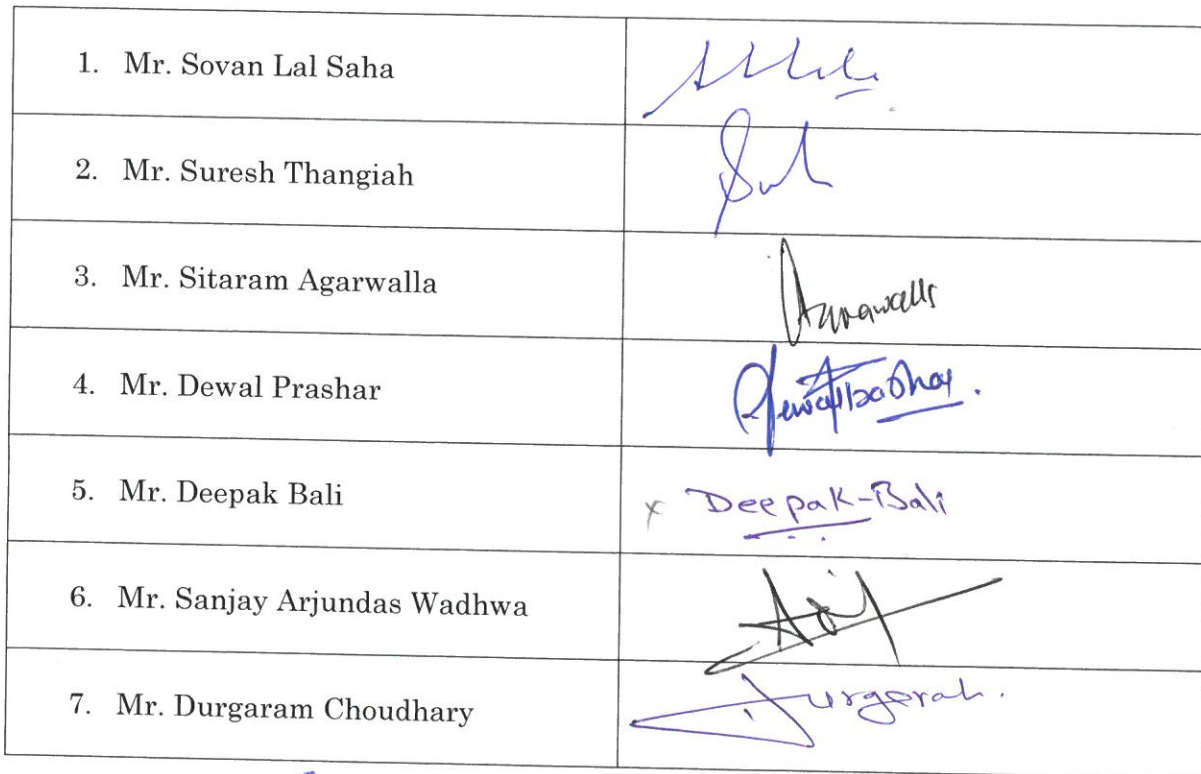 1. Mr. Sovan Lal Saha
2. Mr. Suresh Thangiah
3. Mr. Sitaram Agarwalla
4. Mr. Dewal Prashar
5. Mr. Deepak Bali x Deepak-Bali
6. Mr. Sanjay Arjundas Wadhwa
7. Mr. Durgaram Choudhary